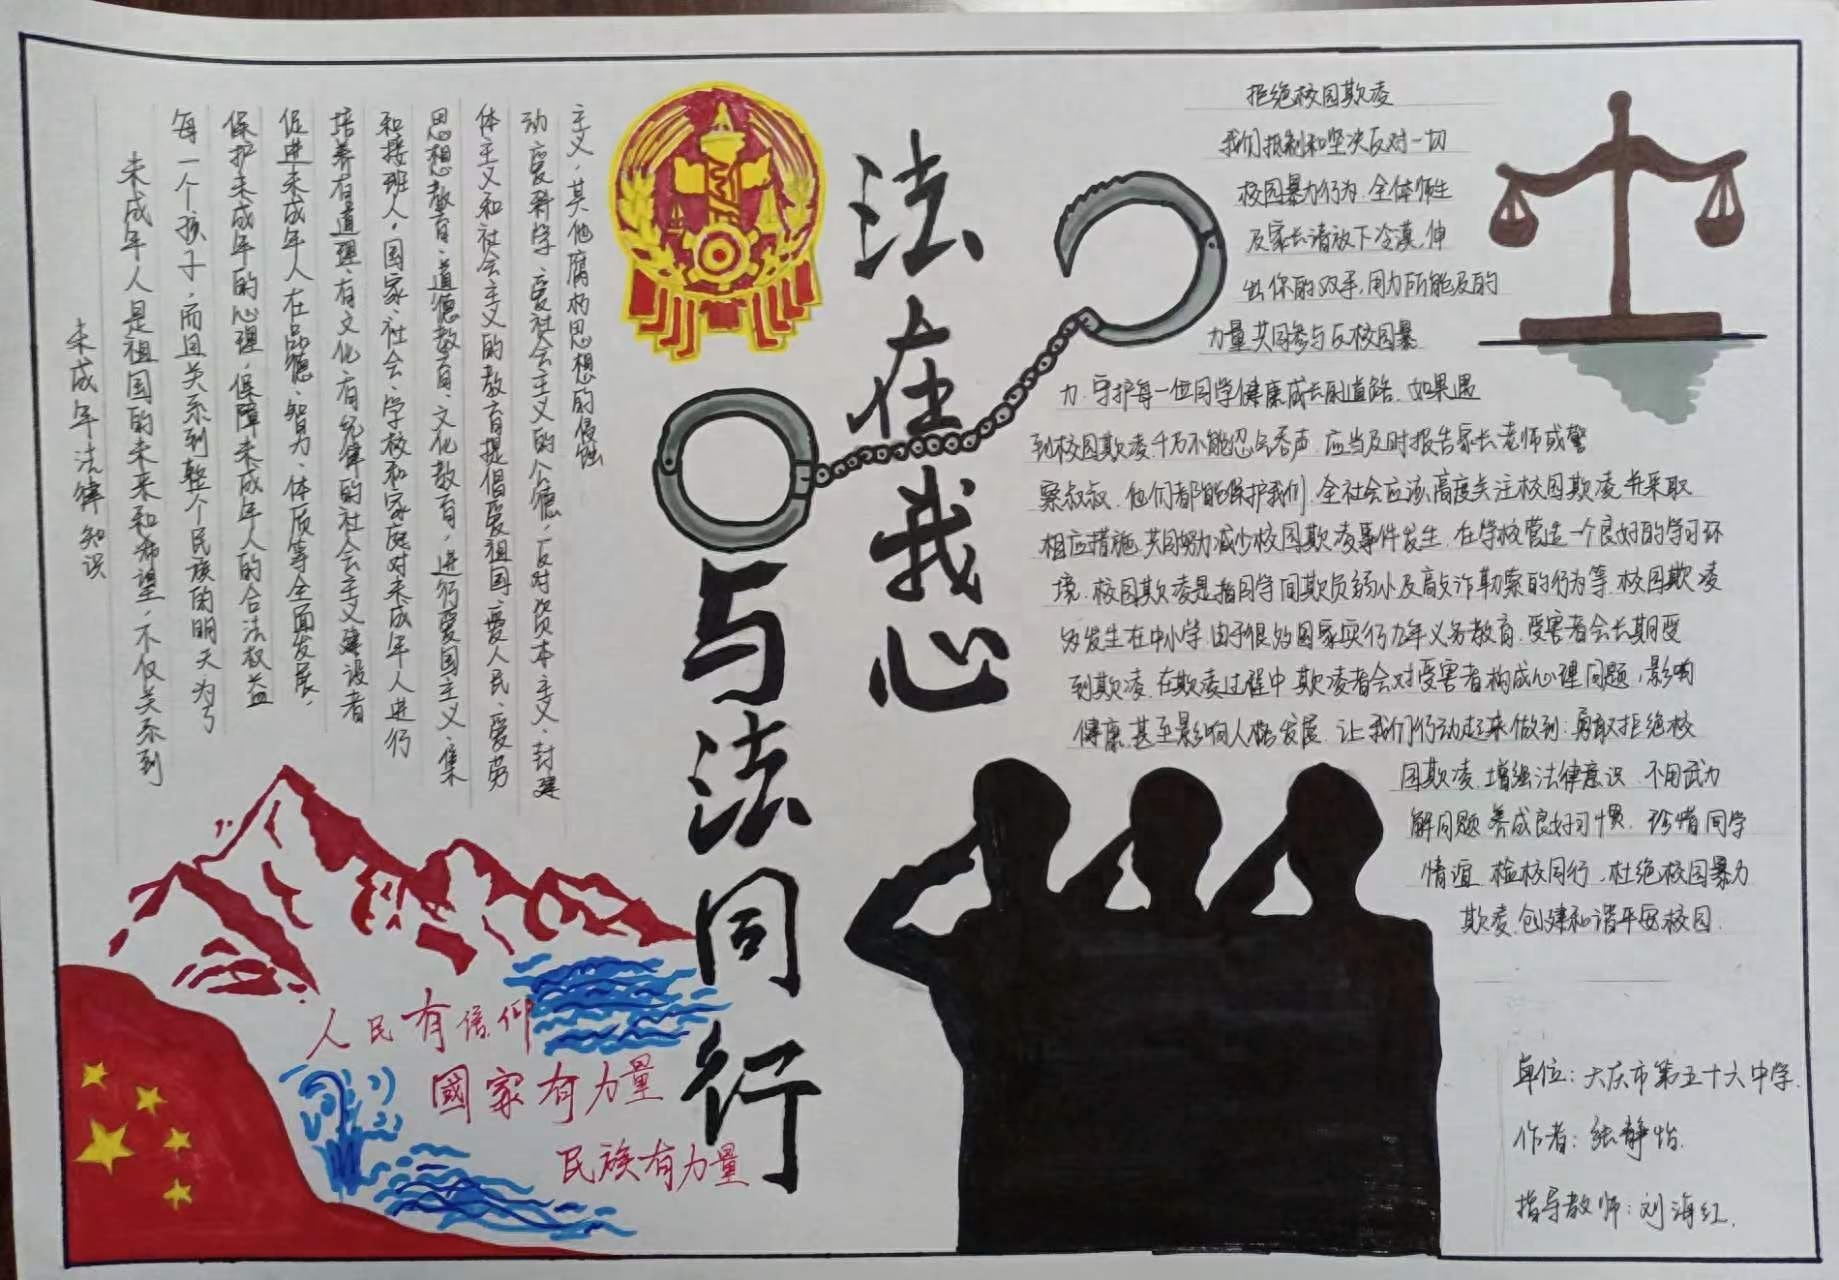 未成年法律知识
未成年人是祖国的未来和希望，不仅关系到
每一个孩子，而且关系到整个民族的明天，为了
保护未成年的心理，保障未成年人的合法权益
促进未成年人在品德、智力、体质等全面发展，
培养有道理、有文化、有纪律的社会主义建设者
和接班人，国家、社会、学校和家庭对未成年人进行
思想教育、道德教育、文化教育，进行爱国主义、集
体主义和社会主义的教育提倡爱祖国、爱人民、爱劳
动、爱科学、爱社会主义的公德，反对资本主义、封建
主义，其他腐朽思想的侵蚀
法在我心
与法同行
拒绝校园欺凌
我们抵制和坚决反对一切
校园暴力行为.全体师生
及家长请放下冷漠,伸
出你的双手,用力所能及的
力量共同参与反校园暴
力.守护每一位同学健康成长的道路.如果遇
到校园欺凌千万不能忍气吞声.应当及时报告家长老师或警
察叔叔.他们都能保护我们.全社会应该高度关注校园欺凌并采取
相应措施.共同努力减少校园欺凌事件发生.在学校营造一个良好的学习环
境.校园欺凌是指同学间欺负弱小及敲诈勒索的行为等.校园欺凌
多发生在中小学.由于很多国家实行九年义务教育.受害者会长期受
到欺凌.在欺凌过程中欺凌者会对受害者构成心理问题,影响
健康.甚至影响人格发展.让我们行动起来做到:勇敢拒绝校
园欺凌.增强法律意识.不用武力
解问题.养成良好习惯.珍惜同学
情谊.检校同行.杜绝校园暴力
欺凌.创建和谐平安校园.
人民有信仰
國家有力量
民族有力量
单位:大庆市第五十六中学.
作者:张静怡.
指导教师:刘海红.